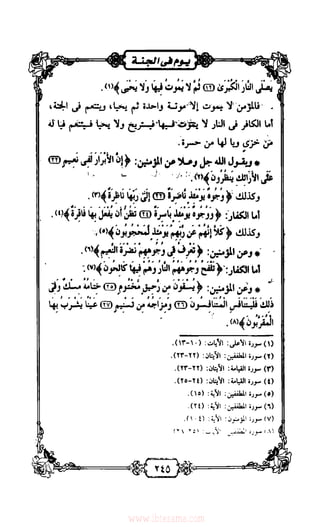 يوم فى الجنة
يَصْلَى النَّارَ الْكُبْرَىٰ (١٢) ثُمَّ لَا يَمُوتُ فِيهَا وَلَا يَحْيَىٰ﴾(١).
فالمؤمن لا يموت إلا موتة واحدة ثم يحيا، ويتنعم فى الجنة،
أما الكافر فى النار لا يموت فيها فيستريح ولا يحيا فيتنعم فيا له
من خزي ويا لها من حسرة.
* ويقول الله جل وعلا عن المؤمنين: ﴿إِنَّ الْأَبْرَارَ لَفِي نَعِيمٍ (٢٢)
عَلَى الْأَرَائِكِ يَنظُرُونَ﴾(٢).
وكذلك ﴿وُجُوهٌ يَوْمَئِذٍ نَّاضِرَةٌ (٢٢) إِلَىٰ رَبِّهَا نَاظِرَةٌ﴾(٣).
أما الكفار: ﴿وَوُجُوهٌ يَوْمَئِذٍ بَاسِرَةٌ (٢٤) تَظُنُّ أَن يُفْعَلَ بِهَا فَاقِرَةٌ﴾(٤).
وكذلك ﴿كَلَّا إِنَّهُمْ عَن رَّبِّهِمْ يَوْمَئِذٍ لَّمَحْجُوبُونَ﴾(٥).
* وعن المؤمنين: ﴿تَعْرِفُ فِي وُجُوهِهِمْ نَضْرَةَ النَّعِيمِ﴾(٦).
أما الكفار: ﴿تَلْفَحُ وُجُوهَهُمُ النَّارُ وَهُمْ فِيهَا كَالِحُونَ﴾(٧).
* وعن المؤمنين: ﴿يُسْقَوْنَ مِن رَّحِيقٍ مَّخْتُومٍ (٢٥) خِتَامُهُ مِسْكٌ وَفِي
ذَٰلِكَ فَلْيَتَنَافَسِ الْمُتَنَافِسُونَ (٢٦) وَمِزَاجُهُ مِن تَسْنِيمٍ (٢٧) عَيْنًا يَشْرَبُ بِهَا
الْمُقَرَّبُونَ﴾(٨).
(١) سورة الأعلى: الآيات: (١٠-١٣).
(٢) سورة المطففين: الآيتان: (٢٢-٢٣).
(٣) سورة القيامة: الآيتان: (٢٢-٢٣).
(٤) سورة القيامة: الآيتان: (٢٤-٢٥).
(٥) سورة المطففين: الآية: (١٥).
(٦) سورة المطففين: الآية: (٢٤).
(٧) سورة المؤمنون: الآية: (١٠٤).
(٨) سورة المطففين
٢٤٥
www.ibtesama.com